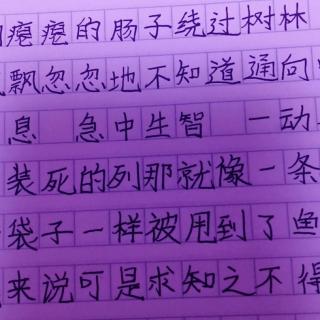 瘪瘪的肠子绕过树林
飘忽忽地不知道通向
息 急中生智 一动
装死的列那就像一条
袋子一样被甩到了鱼
来说可是求知之不得